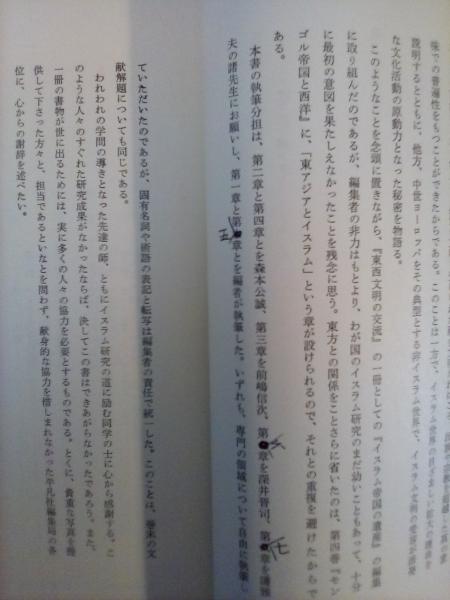 味での普遍性をもつことができたからである。このことは一方で、イスラム世界の目ざましい拡大の理由を
説明するとともに、他方、中世ヨーロッパをその典型とする非イスラム世界で、イスラム文明の受容が活発
な文化活動の原動力となった秘密を物語る。
このようなことを念頭に置きながら、『東西文明の交流』の一冊としての『イスラム帝国の遺産』の編集
に取り組んだのであるが、編集者の非力はもとより、わが国のイスラム研究のまだ幼いこともあって、十分
に最初の意図を果たしえなかったことを残念に思う。東方との関係をことさらに省いたのは、第四巻『モン
ゴル帝国と西洋』に、「東アジアとイスラム」という章が設けられるので、それとの重複を避けたからで
ある。
本書の執筆分担は、第二章と第四章とを森本公誠、第三章を前嶋信次、第六章を深井晋司、第七章を護雅
夫の諸先生にお願いし、第一章と第五章とを編者が執筆した。いずれも、専門の領域について自由に執筆し
ていただいたのであるが、固有名詞や術語の表記と転写は編集者の責任で統一した。このことは、巻末の文
献解題についても同じである。
われわれの学問の導きとなった先達の師、ともにイスラム研究の道に励む同学の士に心から感謝する。こ
のような人々のすぐれた研究成果がなかったならば、決してこの書はできあがらなかったであろう。また、
一冊の書物が世に出るためには、実に多くの人々の協力を必要とするものである。とくに、貴重な写真を提
供して下さった方々と、担当であるといなとを問わず、献身的な協力を惜しまれなかった平凡社編集局の各
位に、心からの謝辞を述べたい。